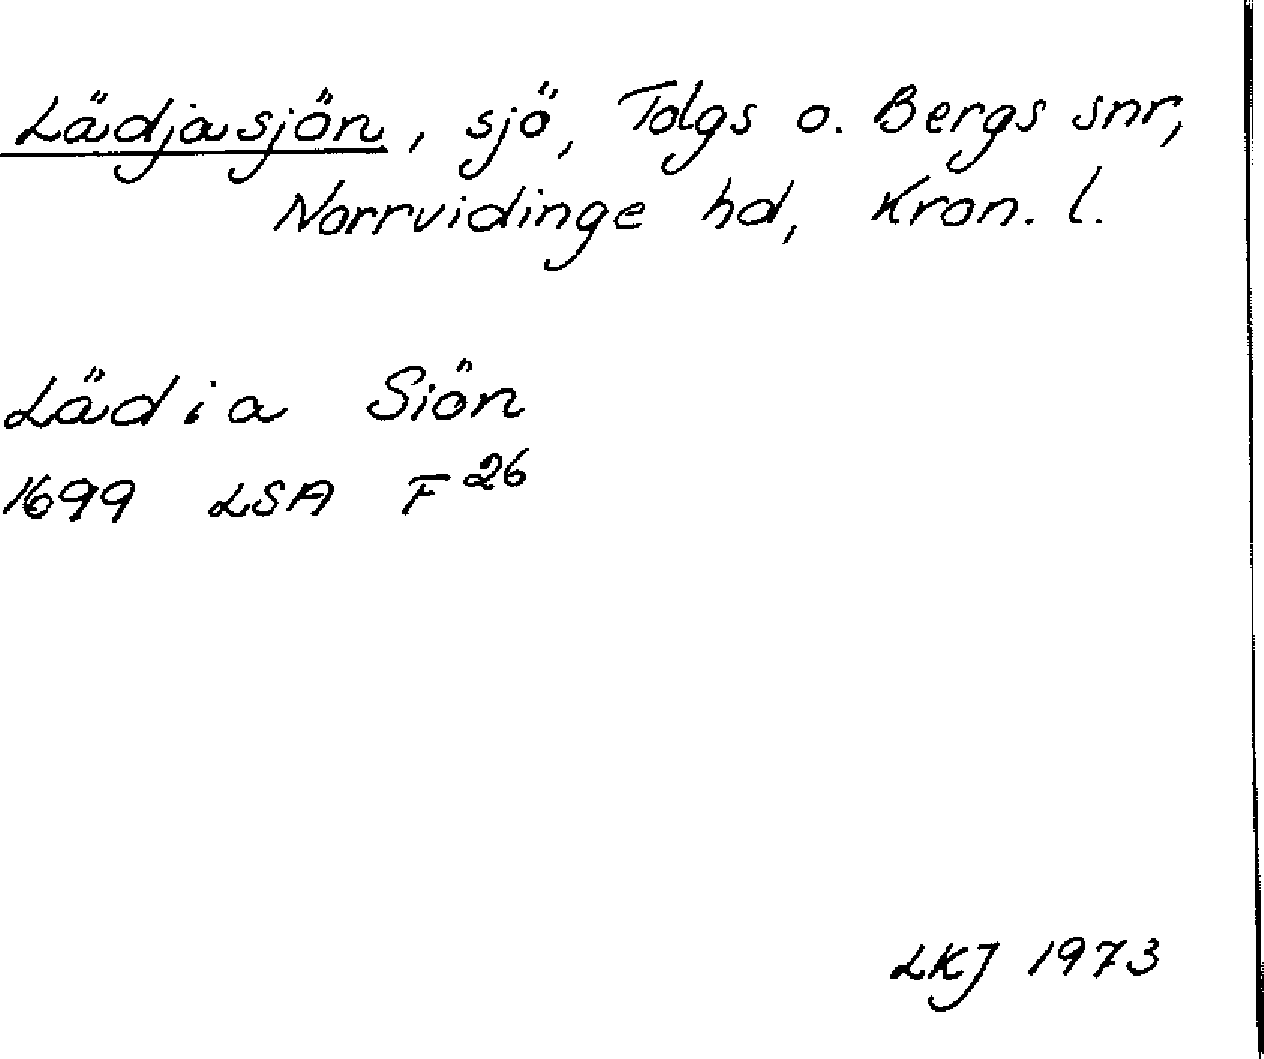 Lädjasjön, sjö, Tolgs o. Bergs snr,
Norrvidinge hd, Kron. l.
Lädia Siön
1699 LSA F 26
LKJ 1973